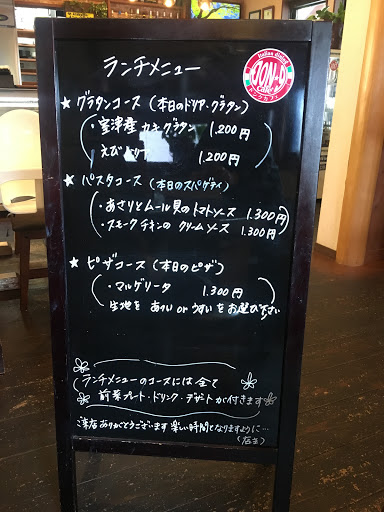 ランチメニュー
Italian dining
JON-D
Cafe
★ グラタンコース (本日のドリア・グラタン)
・室津産 カキグラタン 1.200円
えびドリア 1.200円
★ パスタコース (本日のスパゲティ)
・あさりとムール貝のトマトソース 1.300円
・スモークチキンの クリームソース 1.300円
★ ピザコース (本日のピザ)
・マルゲリータ 1.300円
生地を あつい or うすい をお選び下さい
ランチメニューのコースには全て
前菜プレート・ドリンク・デザートが付きます
ご来店ありがとうございます 楽しい時間となりますように…
(店主)